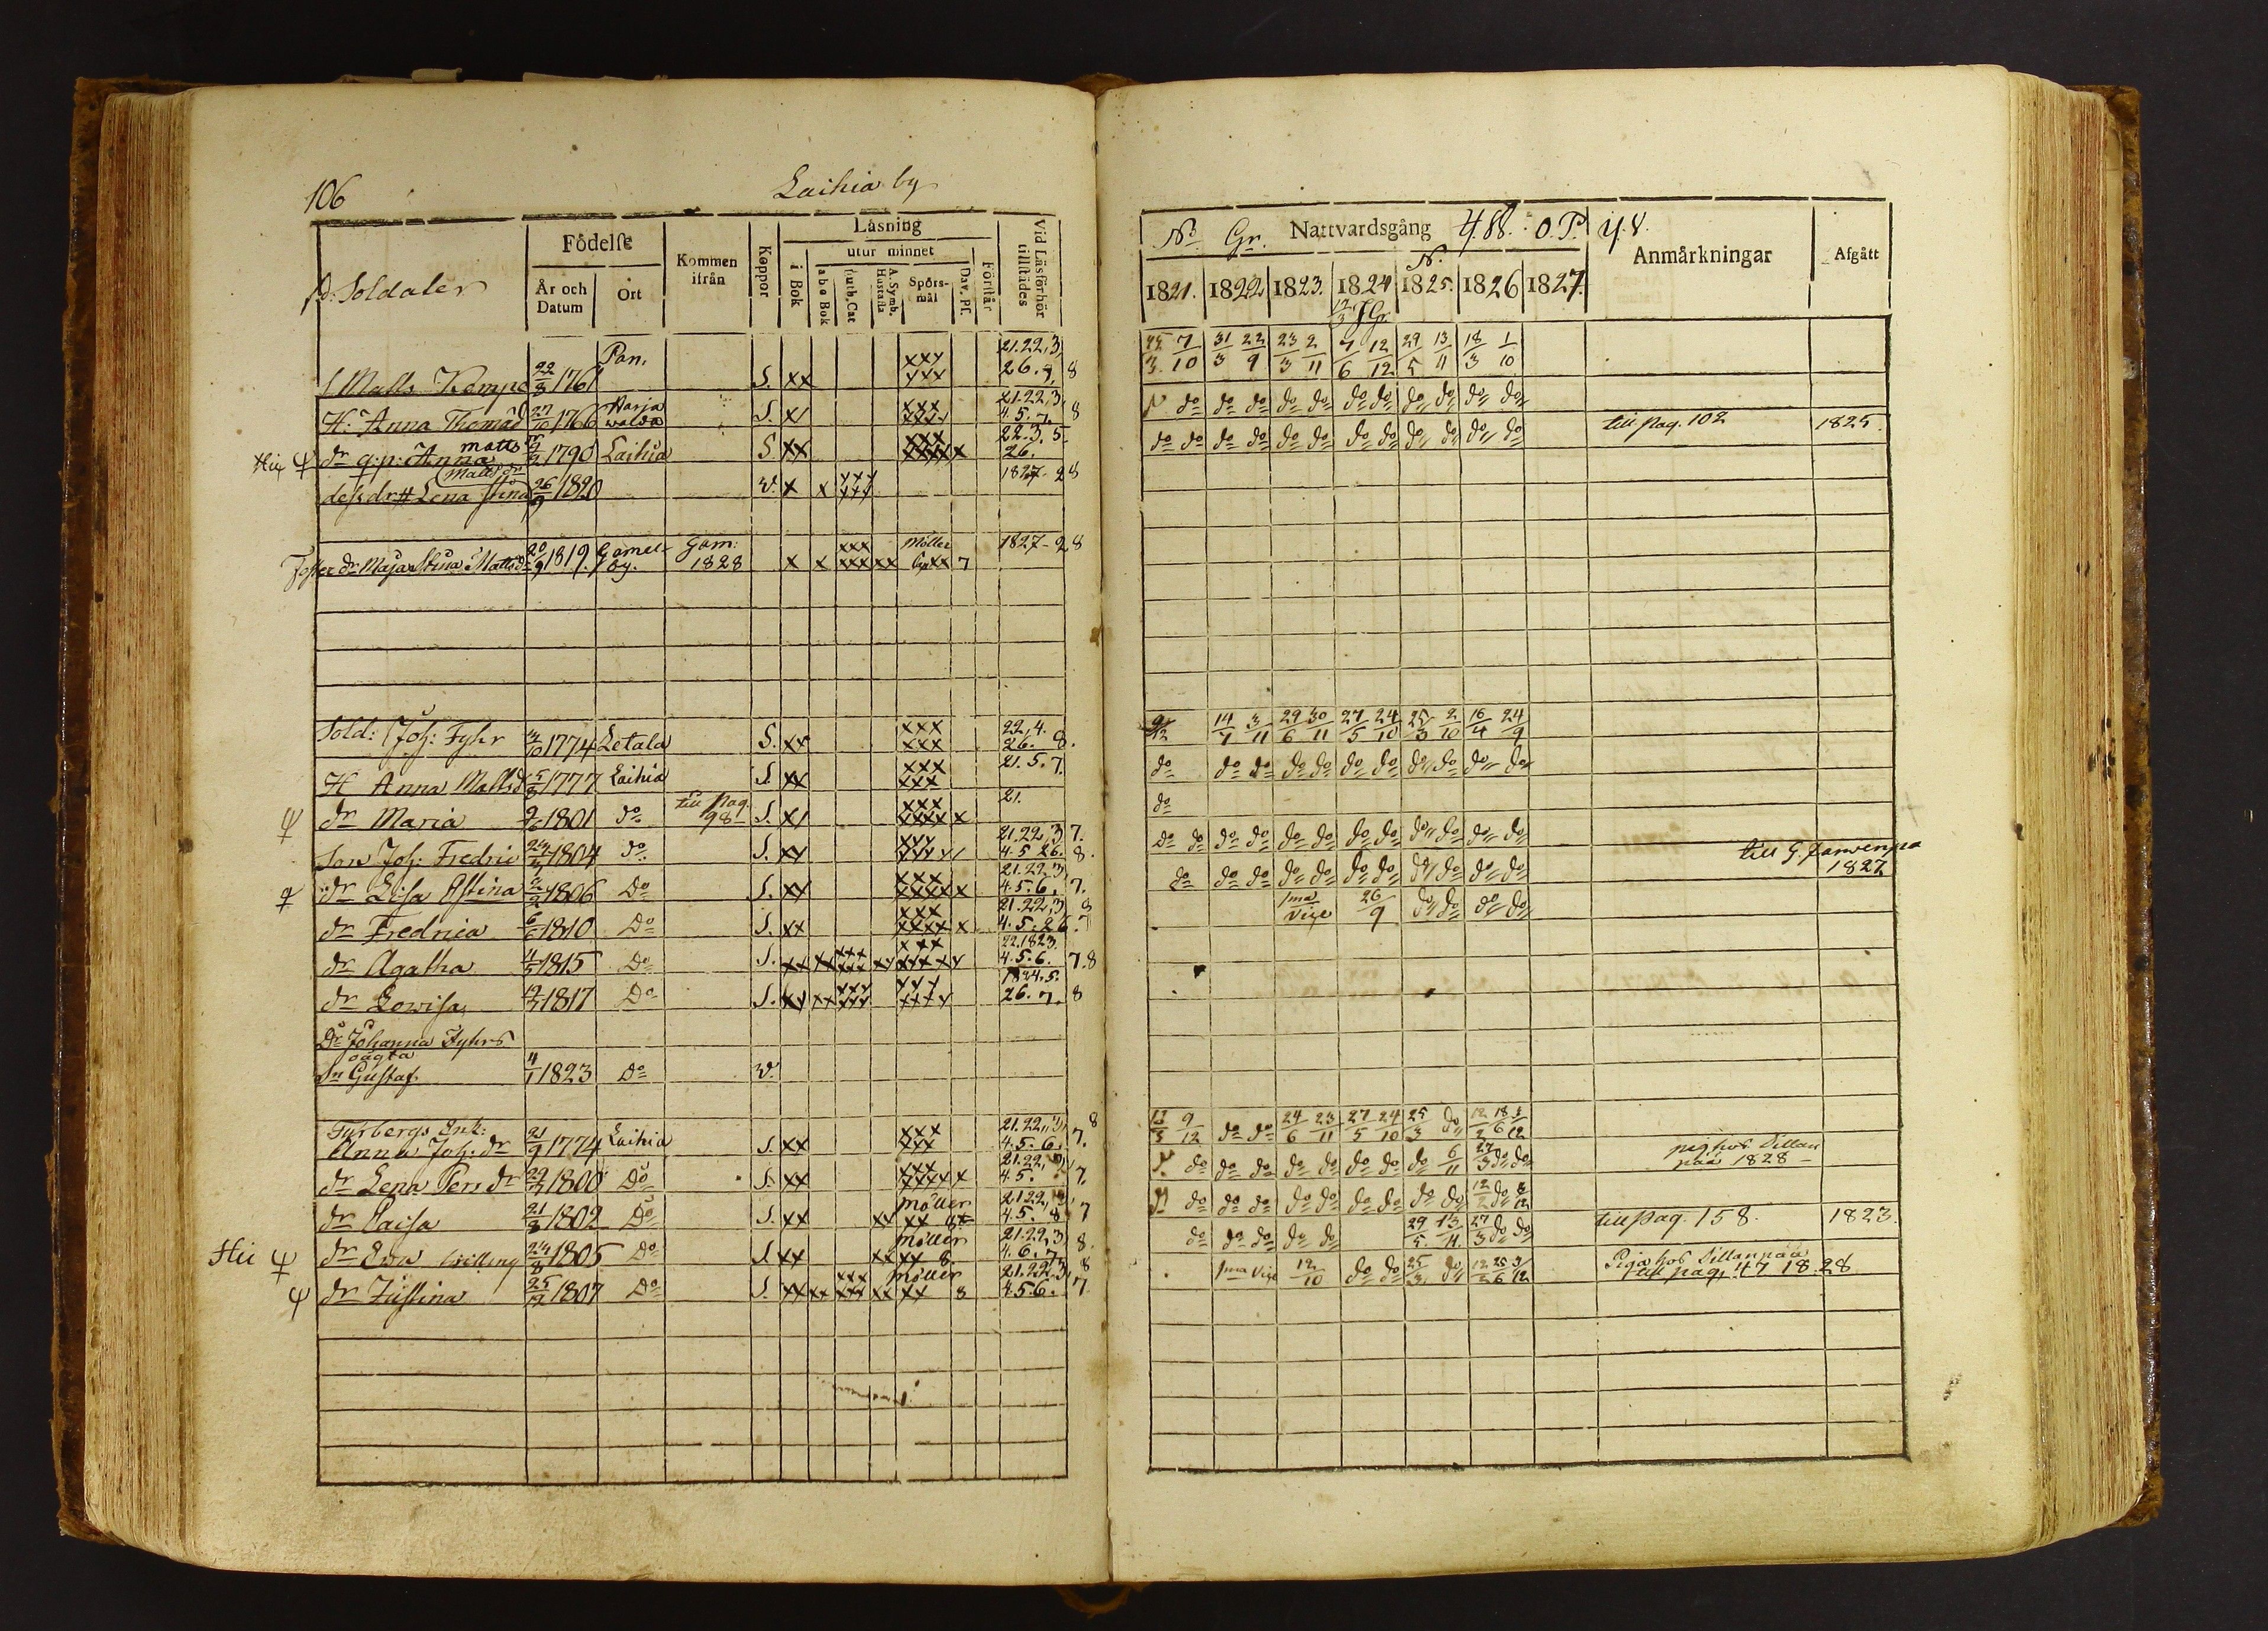 106
Laihia by
Födelse
År och Datum
Ort
Kommen ifrån
Koppor
Läsning
i Bok
utur minnet
a b c Bok
Luth. Cat
A. Symb. Hustafla
Spörs-mål
Dav. Ps.
Förstår
Vid Läsförhör tillstädes
Soldater
S Matts Kempe 22/8 1761 S. xx xxx xxx 21.22,3, 26.7, 8
H: Anna Thomasd 27/10 1766 Harja walda S. x/ xxx 21.22,3, 4.5.7. 8
Hic dr q:p: Anna Matts 1790 Laihia S xx xxx xxxxx x 22.3.5. 26.
dess dr Lena Stina Matts dr 26/9 1820 v. x x xxx 1827-28
Foster dr Maja Stina Mattsdr 20/9 1819. Gamel by. Gam: 1828 x x xxx xxx xx Möller xx 7 1827-28
Sold: Joh: Fyhr 3/10 1774 Letala S. xx xxx xxx 22,4. 26. 8.
H Anna Mattsd 5/8 1777 Laihia S. xx xxx xxx 21.5.7.
dr Maria 1801 do till pag. 98 S. x/ xxx xxxx x 21.
Son Joh: Fredric 24/ 1804 do S. xx xxx 21.22,3 7. 4.5 26. 8.
dr Lisa Stina 2/2 1806 Do S. xx xxx xxxxx x 21.22,3, 4.5.6. 7.
dr Fredrica 6/6 1810 Do S. xx xxx xxxx x 21.22,3 8 4.5.26. 7
dr Agatha 1815 Do S. xx xx xxx xxx xx xxx 22.1823. 4.5.6. 7.8
dr Lowisa 1817 Do S. xx xx xxx xxx 1824.5. 26.7. 8
Dr Johanna Fyhrs
oägta
Sn Gustaf. 4/1 1823 Do v.
Furbergs Enk:
Anna Joh: dr 21/9 1774 Laihia S. xx xxx xxx 21.22,3, 8 4.5.6. 7.
dr Lena Pers dr 1800 Do S. xx xxx xxxxx x 21.22, 4.5. 7.
dr Caisa 21/3 1802 Do S. xx xx möller xx 21.22, 4.5. 8 7
Hic dr Ewa tvilling 24/8 1805 Do S. xx xx möller xx 8. 21.22,3 8. 4.6.7.
dr Justina 25/12 1807 Do S. xx xx xxx xxx xx Möller xx 8 21.22.3, 8 4.5.6. 7
No Gr. Nattvardsgång 488. O.P. 48.
Anmärkningar
Afgått
1821. 1822 1823. 1824 N. 1825. 1826 1827.
7/10 31/3 22/9 23/3 2/11 7/6 12/12 29/5 13/11 18/3 1/10
do do do do do do do do do do do
do do do do do do do do do do do do till pag. 102 1825.
9/12 14/7 3/11 29/6 30/11 27/5 24/10 25/3 2/10 16/4 24/9
do do do do do do do do do do do
do
do do do do do do do do do do do do
do do do do do do do do do do do till G. Jarwenpaa 1827
1ma vice 26/9 do do do do
12/3 9/12 do do 24/6 23/11 27/5 24/10 25/3 do 12/2 18/6 3/12
do do do do do do do do 6/11 27/3 do do pig hos Sillan pää 1828
do do do do do do do do do 12/2 do 3/12
do do do do do 29/5. 13/11. 27/3 do do till pag. 158. 1823.
1ma vice 12/10 do do 25/3 do 12/2 25/6 3/12 Piga hos Sillanpää till pag. 47 1828